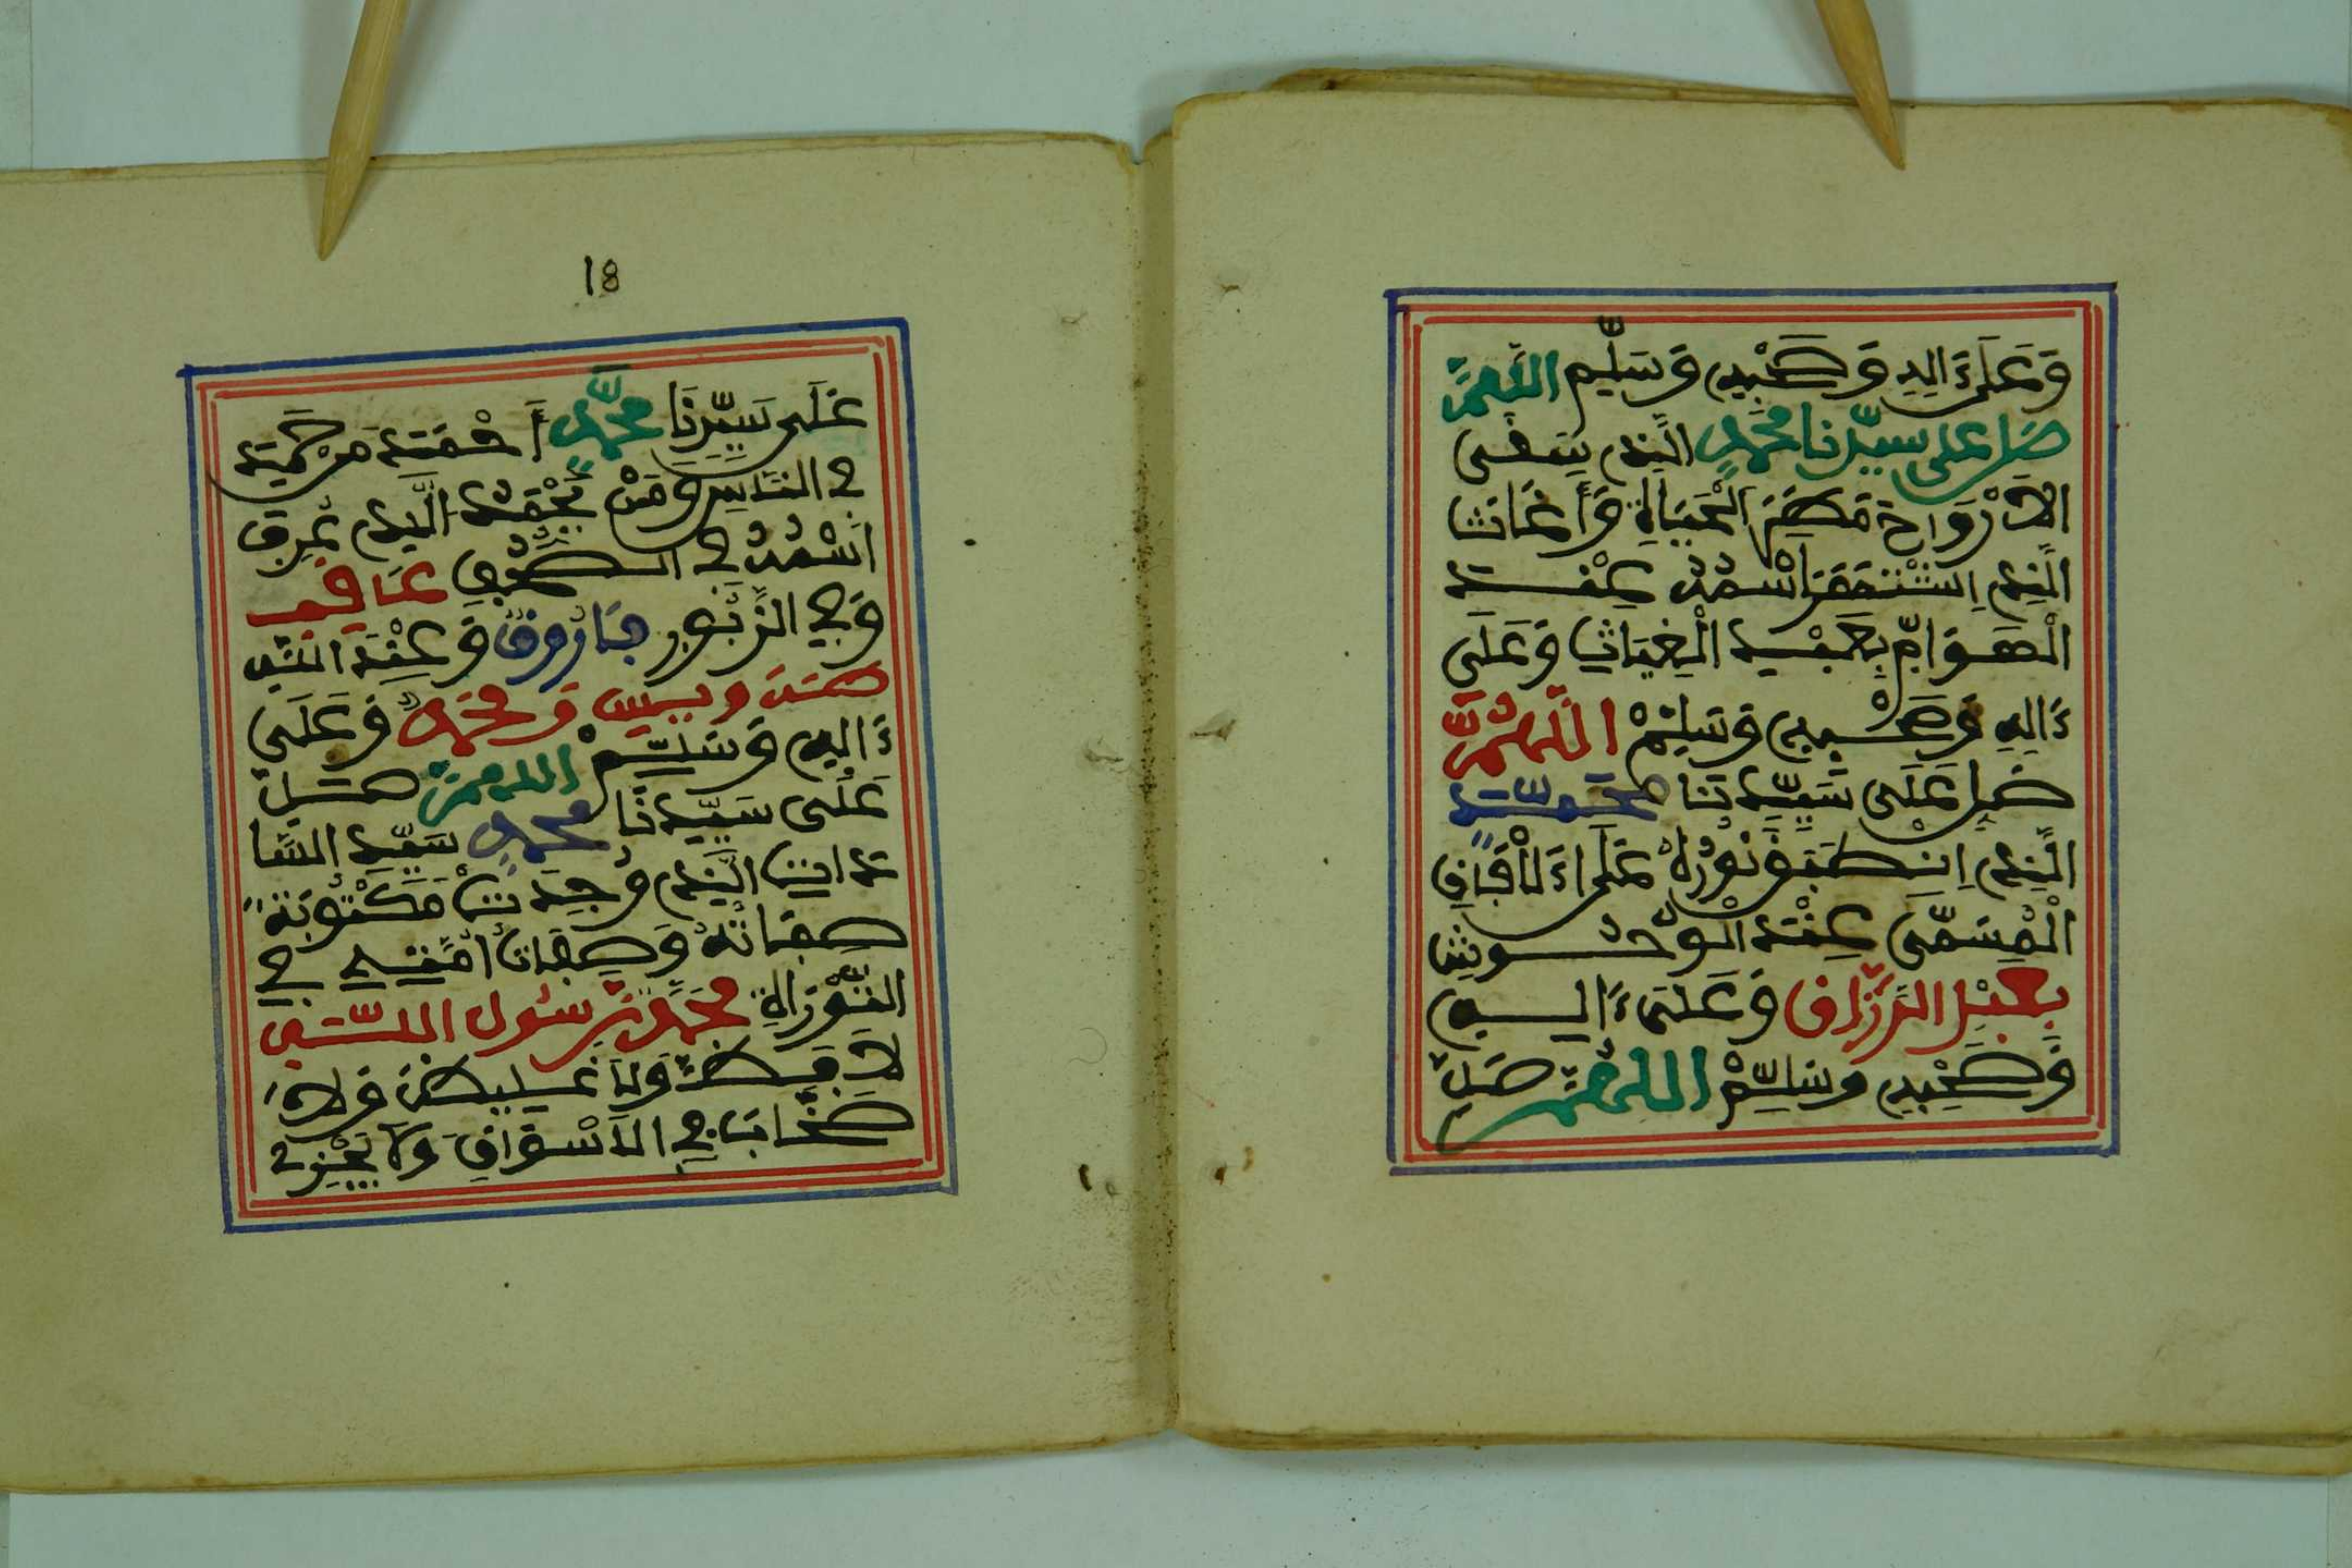 وَعَلَىٰ ءَالِهِ وَصَحْبِهِ وَسَلِّم اللَّهُمَّ
صَلِّ على سيّدنا مُحَمَّدٍ الَّذِي سَقَى
الْأَرْوَاحَ مَطَرَ الْحَيَاةِ وَأَغَاثَ
الَّذِي اسْتَحْقَرَ اسْمُهُ عِنْدَ
الْهَوَامِّ بِعَبْدِ الْغِيَاثِ وَعَلَى
ءَالِهِ وَصَحْبِهِ وَسَلِّمْ اللَّهُمَّ
صَلِّ عَلَى سَيِّدِنَا مُحَمَّدٍ
الَّذِي انْطَبَقَ نُورُهُ عَلَى ءَالَافَاقِ
الْمُسَمَّى عِنْدَ الْوُحُوشِ
بِعَبْدِ الرَّزَّاقِ وَعَلَى ءَالِهِ
وَصَحْبِهِ وَسَلِّمْ اللَّهُمَّ صَلِّ
18
عَلَى سَيِّدِنَا مُحَمَّدٍ أَحْمَدَ مَنْ حَمِدَ
فِي النَّاسِ وَمَنْ يَحْمَدُ الَّذِي عُرِفَ
اسْمُهُ فِي الصُّحُفِ عَاقِب
وَفِي الزَّبُورِ فَارُوقٌ وَعِنْدَ اللَّهِ
طَهَ وَيس وَمُحَمَّدٌ وَعَلَى
ءَالِهِ وَسَلِّمْ اللَّهُمَّ صَلِّ
عَلَى سَيِّدِنَا مُحَمَّدٍ سَيِّدِ السَّا
دَاتِ الَّذِي وُجِدَتْ مَكْتُوبَةً
صِفَاتُهُ وَصِفَاتُ أُمَّتِهِ فِي
التَّوْرَاةِ مُحَمَّدٌ رَسُولُ اللَّهِ
لَا فَظٌّ وَلَا غَلِيظٌ وَلَا
صَخَّابٌ فِي الْأَسْوَاقِ وَلَا يَجْزِي